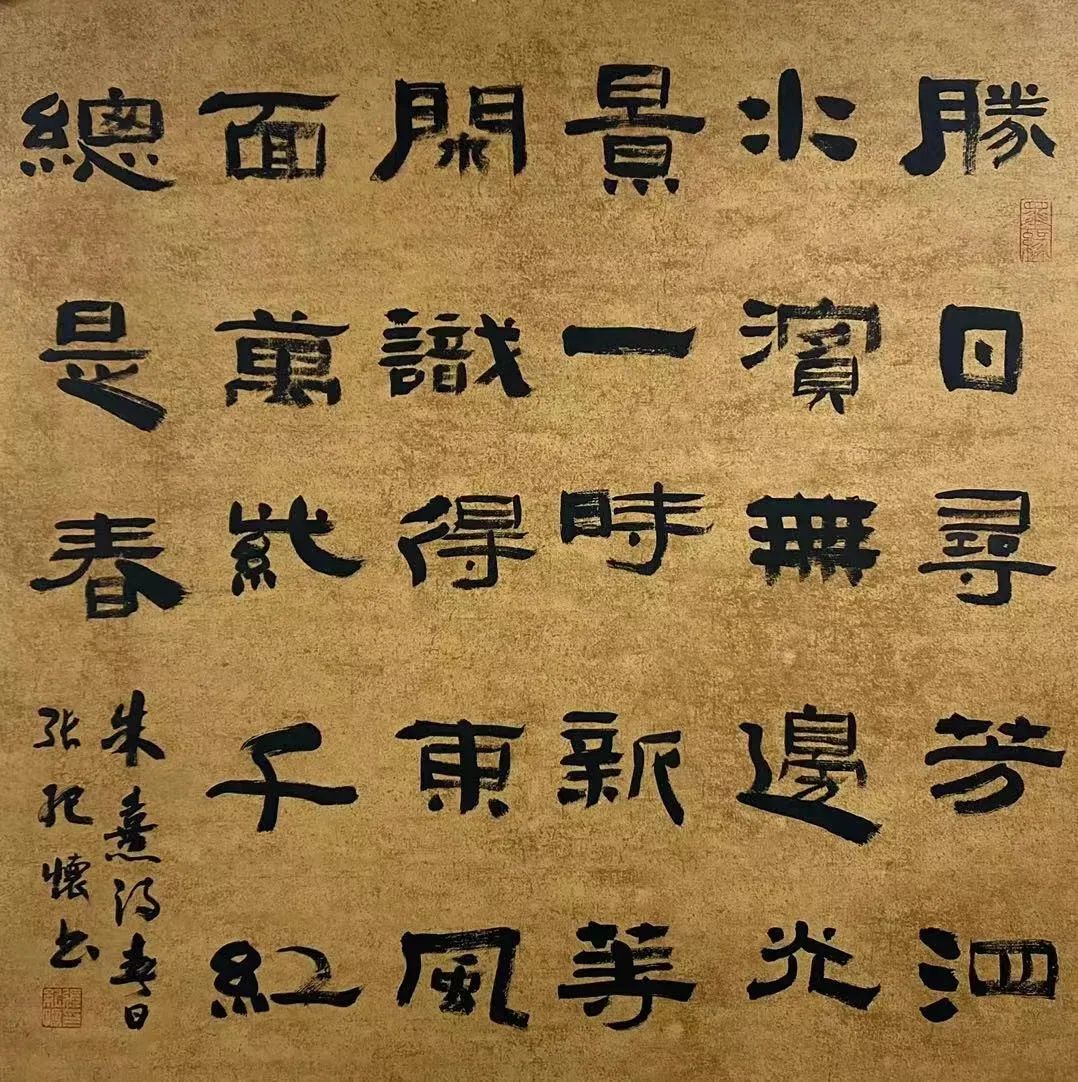 勝日尋芳泗
水濱無邊光
景一時新等
閑識得東風
面萬紫千紅
總是春
朱熹诗春日
张纪懷书